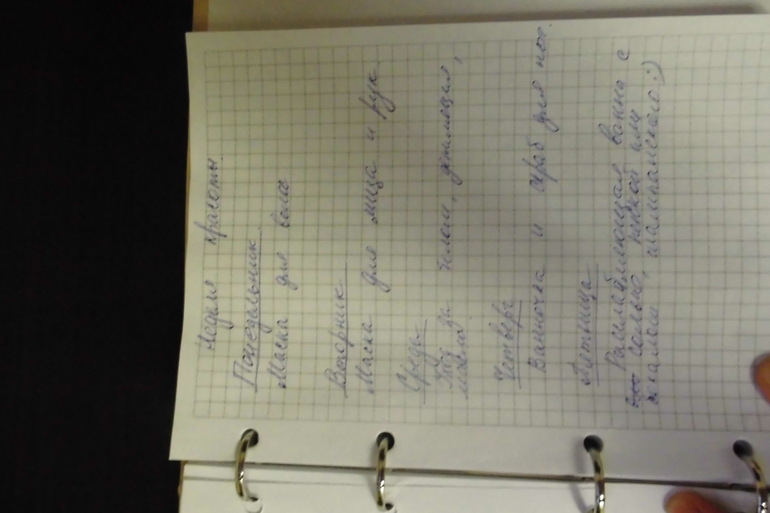 Неделя красоты
Понедельник
Маска для волос
Вторник
Маска для лица и рук
Среда
Уход за телом, эпиляция,
масло
Четверг
Ванночка и скраб для ног
Пятница
Расслабляющая ванна с
солью, пенкой или
бокалом шампанского :)